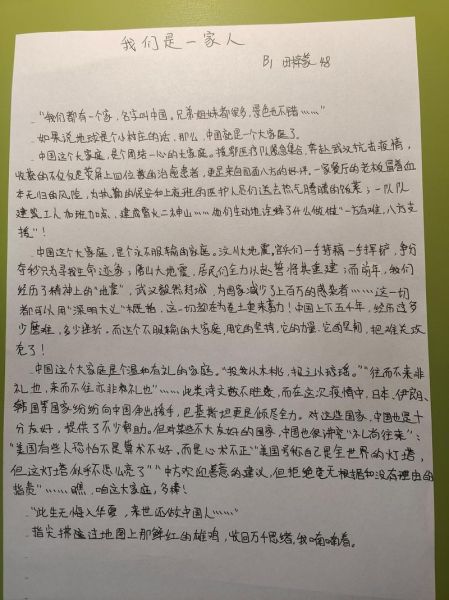 我们是一家人
B1 田梓蒙 48
"我们都有一个家,名字叫中国。兄弟姐妹都很多,景色也不错……"
如果说地球是个小村庄的话,那么,中国就是一个大家庭了。
中国这个大家庭,是个团结一心的大家庭。援鄂医疗队紧急集合,奔赴武汉抗击疫情,
收获的不仅仅是荧屏上四位数的治愈患者,更是来自四面八方的好评。一家餐厅的老板冒着血
本无归的风险,为执勤的保安和上夜班的医护人员们送去热气腾腾的饭菜;一队队
建筑工人加班加点,建成雷火二神山……他们生动地诠释了什么叫做"一方有难,八方支
援"!
中国这个大家庭,是个永不服输的家庭。汶川大地震,官兵们一手持镐一手挥铲,争分
夺秒只为寻找生命迹象;唐山大地震,居民们全力以赴誓将其重建;而前年,我们
经历了精神上的"地震",武汉毅然封城,为国家减少了上百万的感染者……这一切
都可以用"深明大义"概括,这一切都在为卷土重来蓄力!中国上下五千年,经历过多
少磨难,多少挫折,而这个不服输的大家庭,用它的坚持,它的力量,它的團韧,把难关攻
克了!
中国这个大家庭是个温和有礼的家庭。"投我以木桃,报之以琼瑶。""往而不来非
礼也,来而不往亦非礼也"……此类诗文数不胜数,而在这次疫情中,日本、伊朗、
韩国等国家纷纷向中国伸出援手,巴基斯坦更是倾尽全力。对这些国家,中国也是十
分友好,提供了不少帮助。但对某些不大友好的国家,中国也很讲究"礼尚往来":
"美国有些人恐怕不是算术不好,而是心术不正""美国号称自己是全世界的灯塔,
但这灯塔似乎不怎么亮了""中方欢迎善意的建议,但拒绝毫无根据和没有理由的
指责"……瞧,咱这大家庭,多棒!
"此生无悔入华夏,来世还做中国人……"
指尖拂过地图上那鲜红的雄鸡,收回万千思绪,我喃喃着。